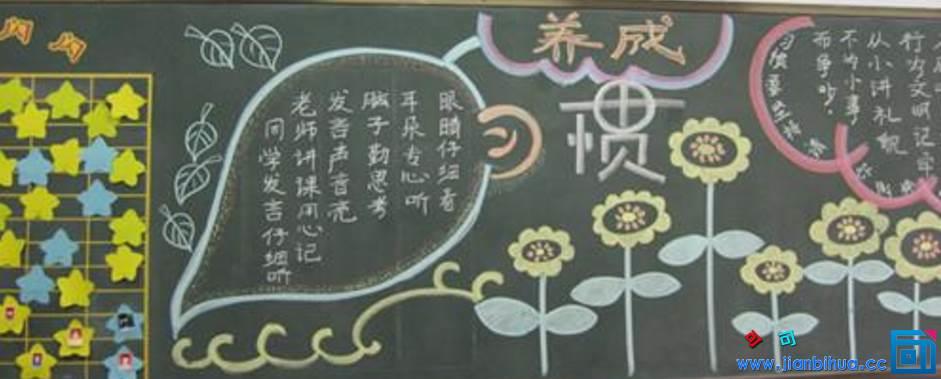 闪闪
养成
惯
眼睛仔细看
耳朵专心听
脑子勤思考
发言声音亮
老师讲课用心记
同学发言仔细听
行为文明记牢
从小讲礼貌
不为小事
而争吵
www.jianbihua.cc